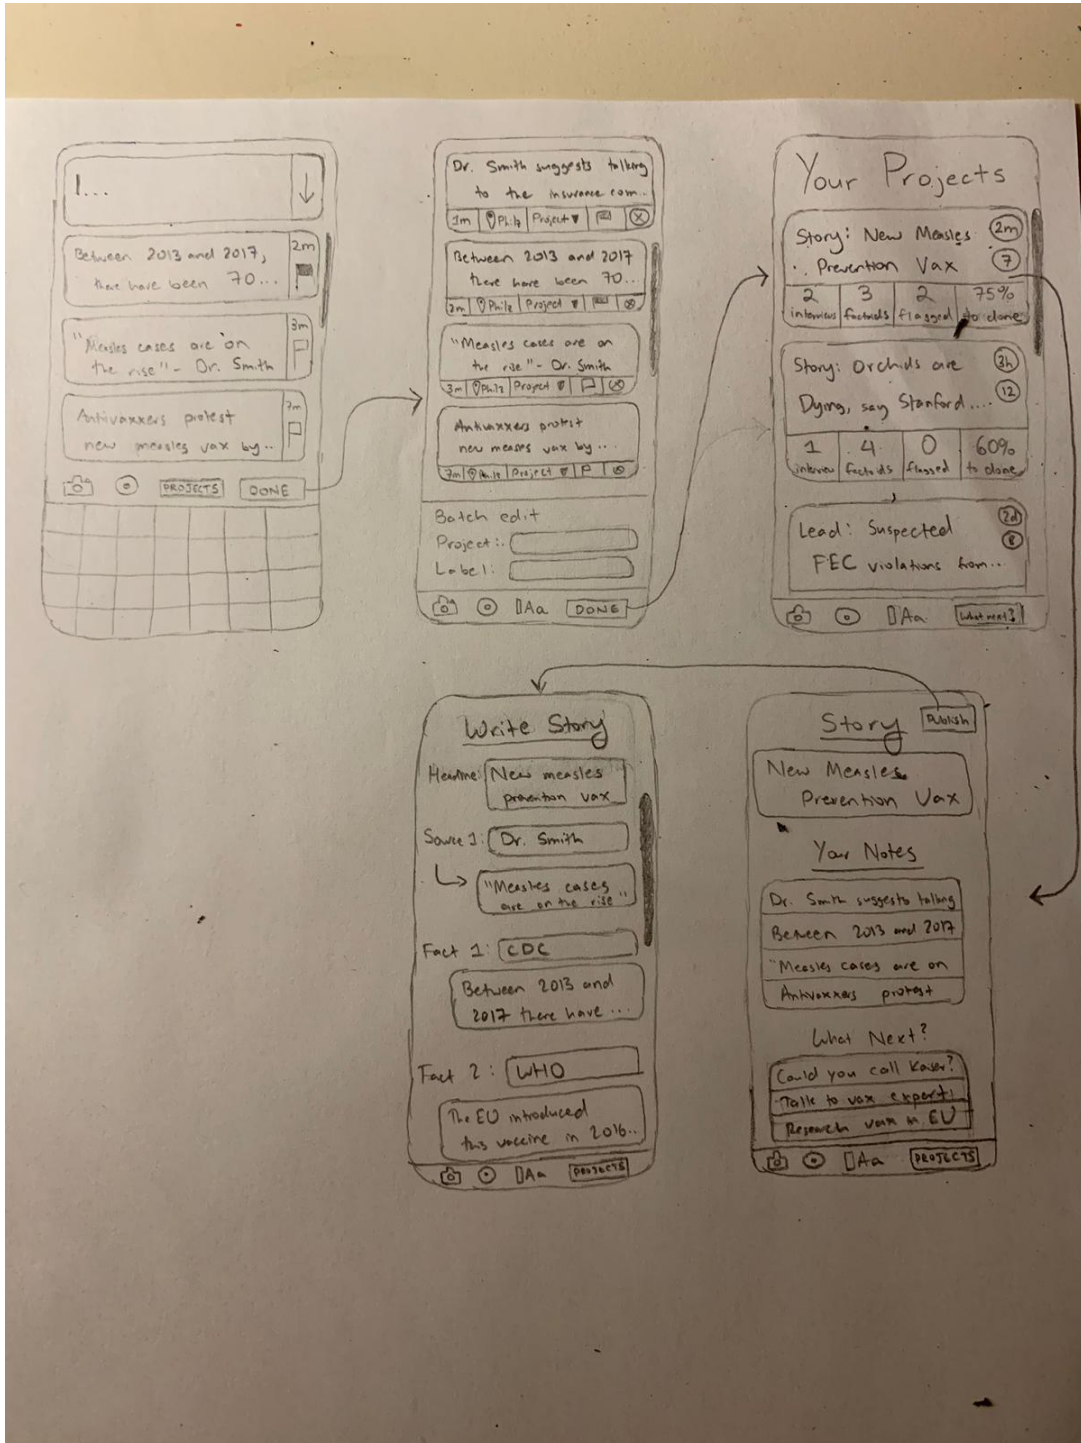 I...
Between 2013 and 2017,
there have been 70...
2m
"Measles cases are on
the rise" - Dr. Smith
3m
Antivaxxers protest
new measles vax by..
7m
PROJECTS
DONE
Dr. Smith suggests talking
to the insurance com...
1m Philz Project
Between 2013 and 2017
there have been 70...
2m Philz Project
"Measles cases are on
the rise" - Dr. Smith
3m Philz Project
Antivaxxers protest
new measles vax by...
7m Philz Project
Batch edit
Project:
Label:
Aa DONE
Your Projects
Story: New Measles 2m
Prevention Vax 7
2 3 2 75%
interviews factoids flagged to done
Story: Orchids are 3h
Dying, say Stanford.... 12
1 4 0 60%
interview factoids flagged to done
Lead: Suspected 2d
FEC violations from... 8
Aa What next?
Write Story
Headline: New measles
prevention vax
Source 1: Dr. Smith
"Measles cases
are on the rise"
Fact 1: CDC
Between 2013 and
2017 there have ...
Fact 2: WHO
The EU introduced
this vaccine in 2016..
Aa PROJECTS
Story Publish
New Measles
Prevention Vax
Your Notes
Dr. Smith suggests talking
Between 2013 and 2017
"Measles cases are on
Antivaxxers protest
What Next?
Could you call Kaiser?
Talk to vax expert
Research vax in EU
Aa PROJECTS